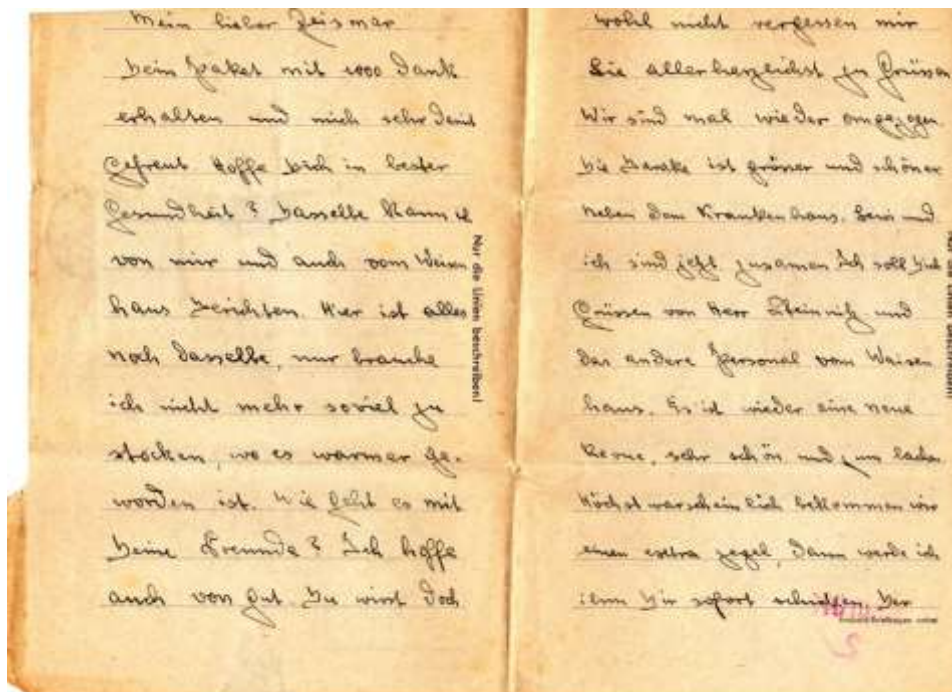 Mein lieber
Dein Paket mit 1000 Dank
erhalten und mich sehr damit
gefreut Hoffe Dich in bester
Gesundheit? Dasselbe kann ich
von mir und auch vom Waisen
haus Berichten. Hier ist alles
noch dasselbe, nur brauche
ich nicht mehr soviel zu
stocken, wo es warmer ge-
worden ist. Wie geht es mit
Deine Freunde? Ich hoffe
auch von gut. Du wirst doch
Nur die Linien beschreiben!
wohl nicht vergessen mir
Sie allerherzlichst zu Grüssen
Wir sind mal wieder umgezogen
Die Barake ist grösser und schöner
neben dem Krankenhaus. und
ich sind jetzt zusamen Ich soll Dich
Grüssen von Herr und
das andere Personal vom Waisen
haus. Es ist wieder eine neue
sehr schön und zum lachen
Höchst warscheinlich bekommen wir
einen extra dann werde ich
ihm Dir sofort schicken. Der